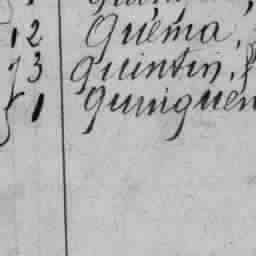 12 Quéma,
3 Quintin,
1 Quiniguen